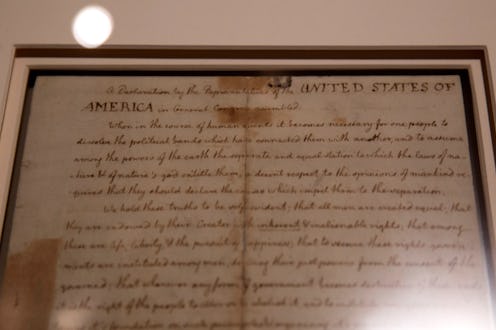 A Declaration by the Representatives of the UNITED STATES OF
AMERICA in General Congress assembled.
When in the course of human events it becomes necessary for one people to
dissolve the political bands which have connected them with another, and to assume
among the powers of the earth the separate and equal station to which the laws of na-
ture & of nature's god entitle them, a decent respect to the opinions of mankind re-
quires that they should declare the causes which impel them to the separation.
We hold these truths to be self evident; that all men are created equal; that
they are endowed by their Creator with inherent & inalienable rights; that among
these are life, liberty, & the pursuit of happiness; that to secure these rights govern-
ments are instituted among men, deriving their just powers from the consent of the
governed; that whenever any form of government becomes destructive of these
it is the right of the people to alter or to abolish it, and to institute
it's foundation on such principles